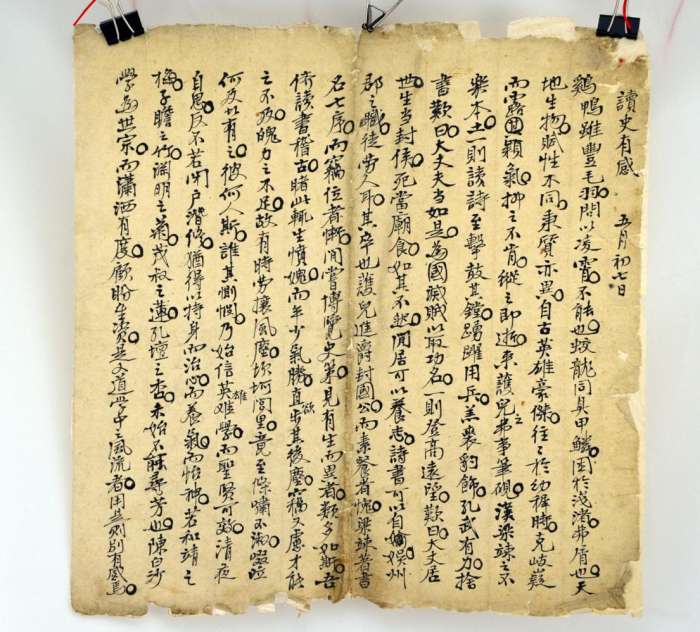 讀史有感　五月初七日
鷄鴨雖豐毛羽閉以凌霄不能也蛟龍同具甲鱗困於淺渚弗屑也天
地生物賦性不同秉質亦異自古英雄豪傑往之於幼穉時克岐嶷
而露圭穎氣抑之不肯縱之即逝來護兒弗事筆硯漢梁竦之不
樂本土一則讀詩至擊鼓其鏜踴躍用兵羔裘豹飾孔武有力捨
書歎曰大丈夫當如是為國滅賊以取功名一則登高遠望歎曰大丈居
世生當封侯死當廟食如其不然閒居可以養志詩書可以自娛州
郡之職徒勞人耳其卒也護兒進爵封國公而素餐者愧梁竦著書
名七序而竊位者慚閒嘗博覽史第見有生而異者類多如斯吾
儕讀書稽古睹此輒生憤愧而年少氣勝直欲步其後塵竊又慮才能
之不及魄力之不足故有時勞攘風塵坎坷閭里竟至條嘯不淑啜泣
何及此有之彼何人斯誰其惻憫乃始信英雄難學而聖賢可效清夜
自思反不若閉戶潛修猶得以持身而治心而養氣而怡神若和靖之
梅子瞻之竹淵明之菊茂叔之蓮孔壇之杏未始不能尋芳也陳白沙
學為世宗而瀟洒有度顧盼生資是又道學中之風流者用是則別有感焉